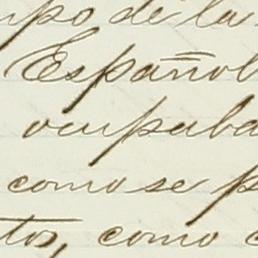 mpo de la
Español
ocupaba
como se p
tos, como